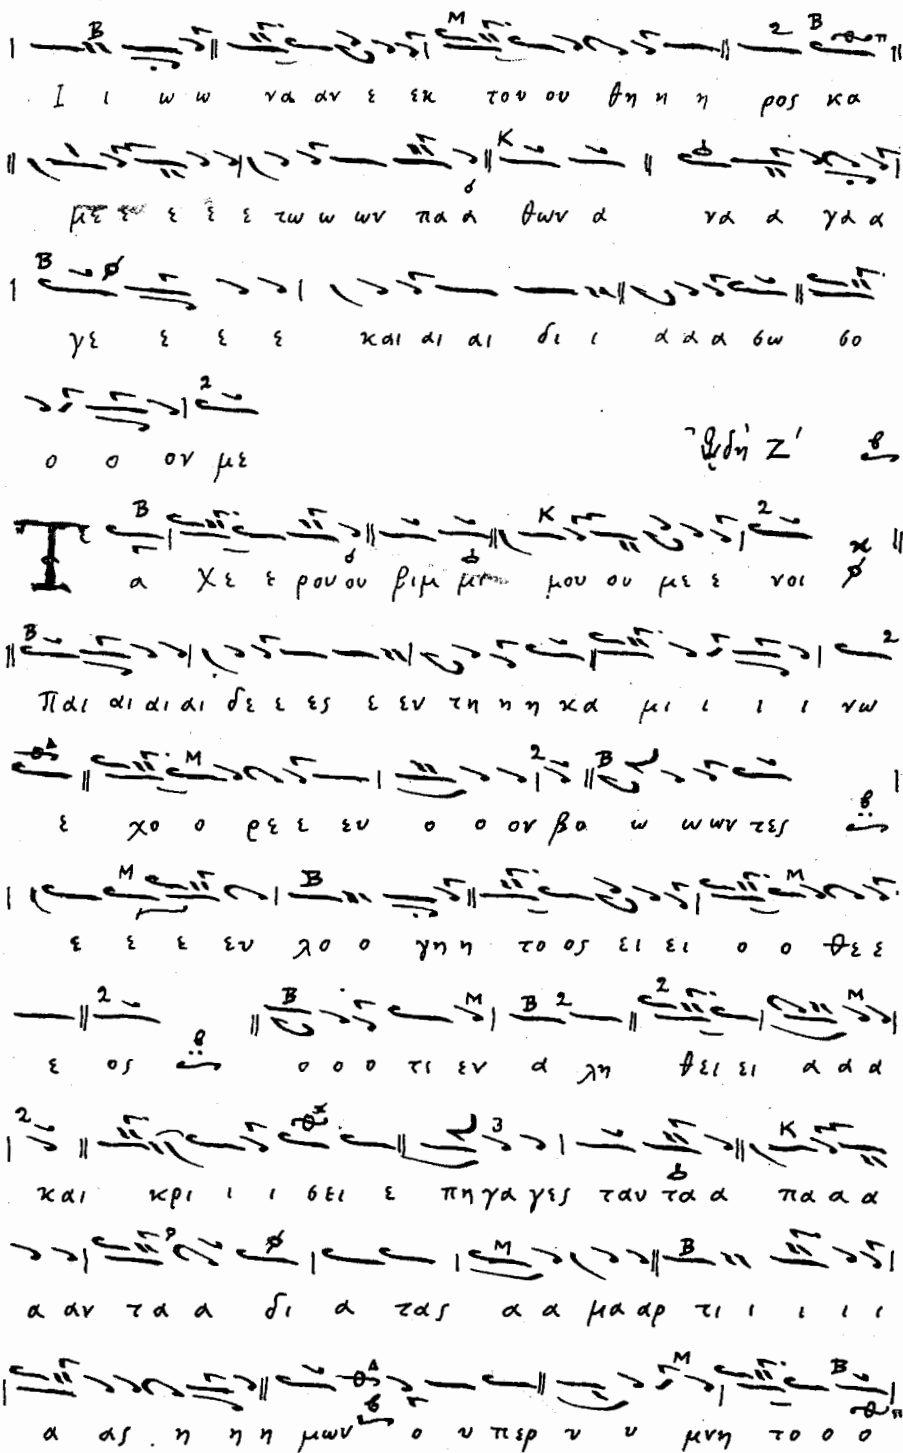 Ι ι ω ω να αν ε εκ του ου θη η η ρος κα
με ε ε ε ε τω ω ων πα α θων α να α γα α
γε ε ε ε και αι αι δι ι α α α σω σο
ο ο ον με
ᾨδή Ζ'
Τ α Χε ε ρου ου βιμ μι μου ου με ε νοι
Παι αι αι αι δε ε ες ε εν τη η η κα μι ι ι ι νω
ε χο ο ρε ε ευ ο ο ον βο ω ω ων τες
ε ε ε ευ λο ο γη η το ος ει ει ο ο θε ε
ε ος ο ο ο τι εν α λη θει ει α α α
και κρι ι ι σει ε πη γα γες ταυ τα α πα α α
α αν τα α δι α τας α α μα αρ τι ι ι ι ι
α ας η η η μων ο υ περ υ υ μνη το ο ο